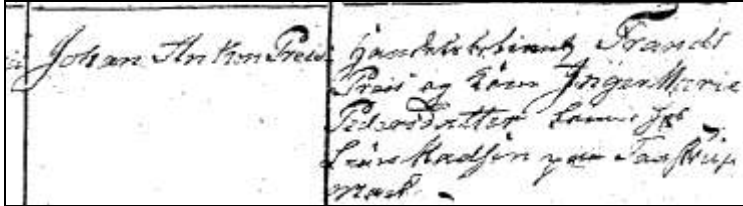 Johan Anton Preis Handelsbetient Frands
Preis og Kone Inger Marie
Pedersdatter
paa Taastrup
Mark